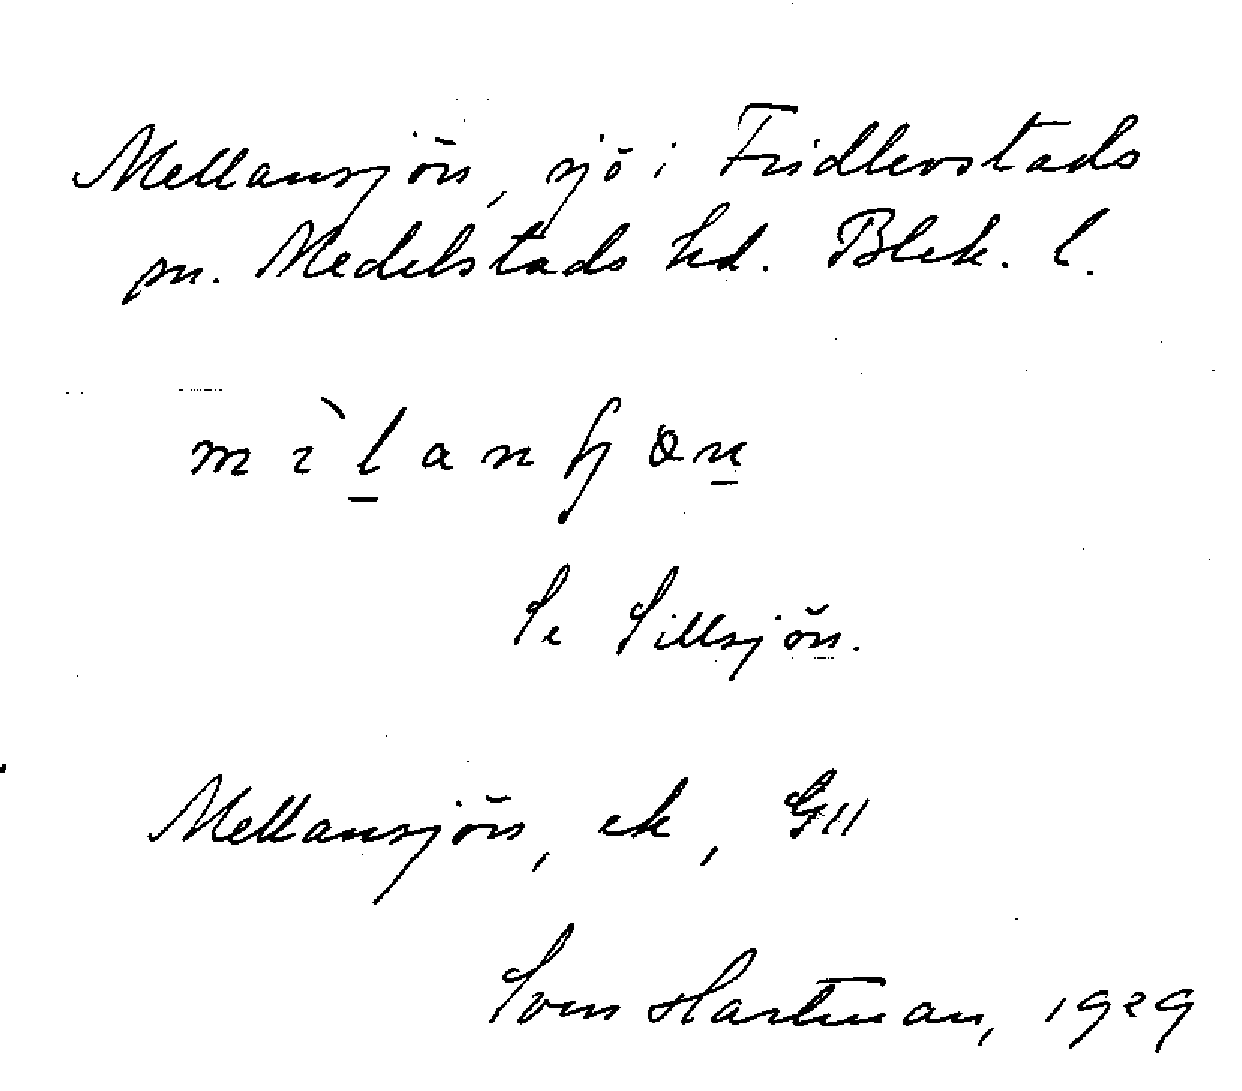 Mellansjön, sjö i Fridlevstads
sn. Medelstads hd. Blek. l.
Se Sillsjön.
Mellansjön, ek, GII
Sven Hartman, 1929